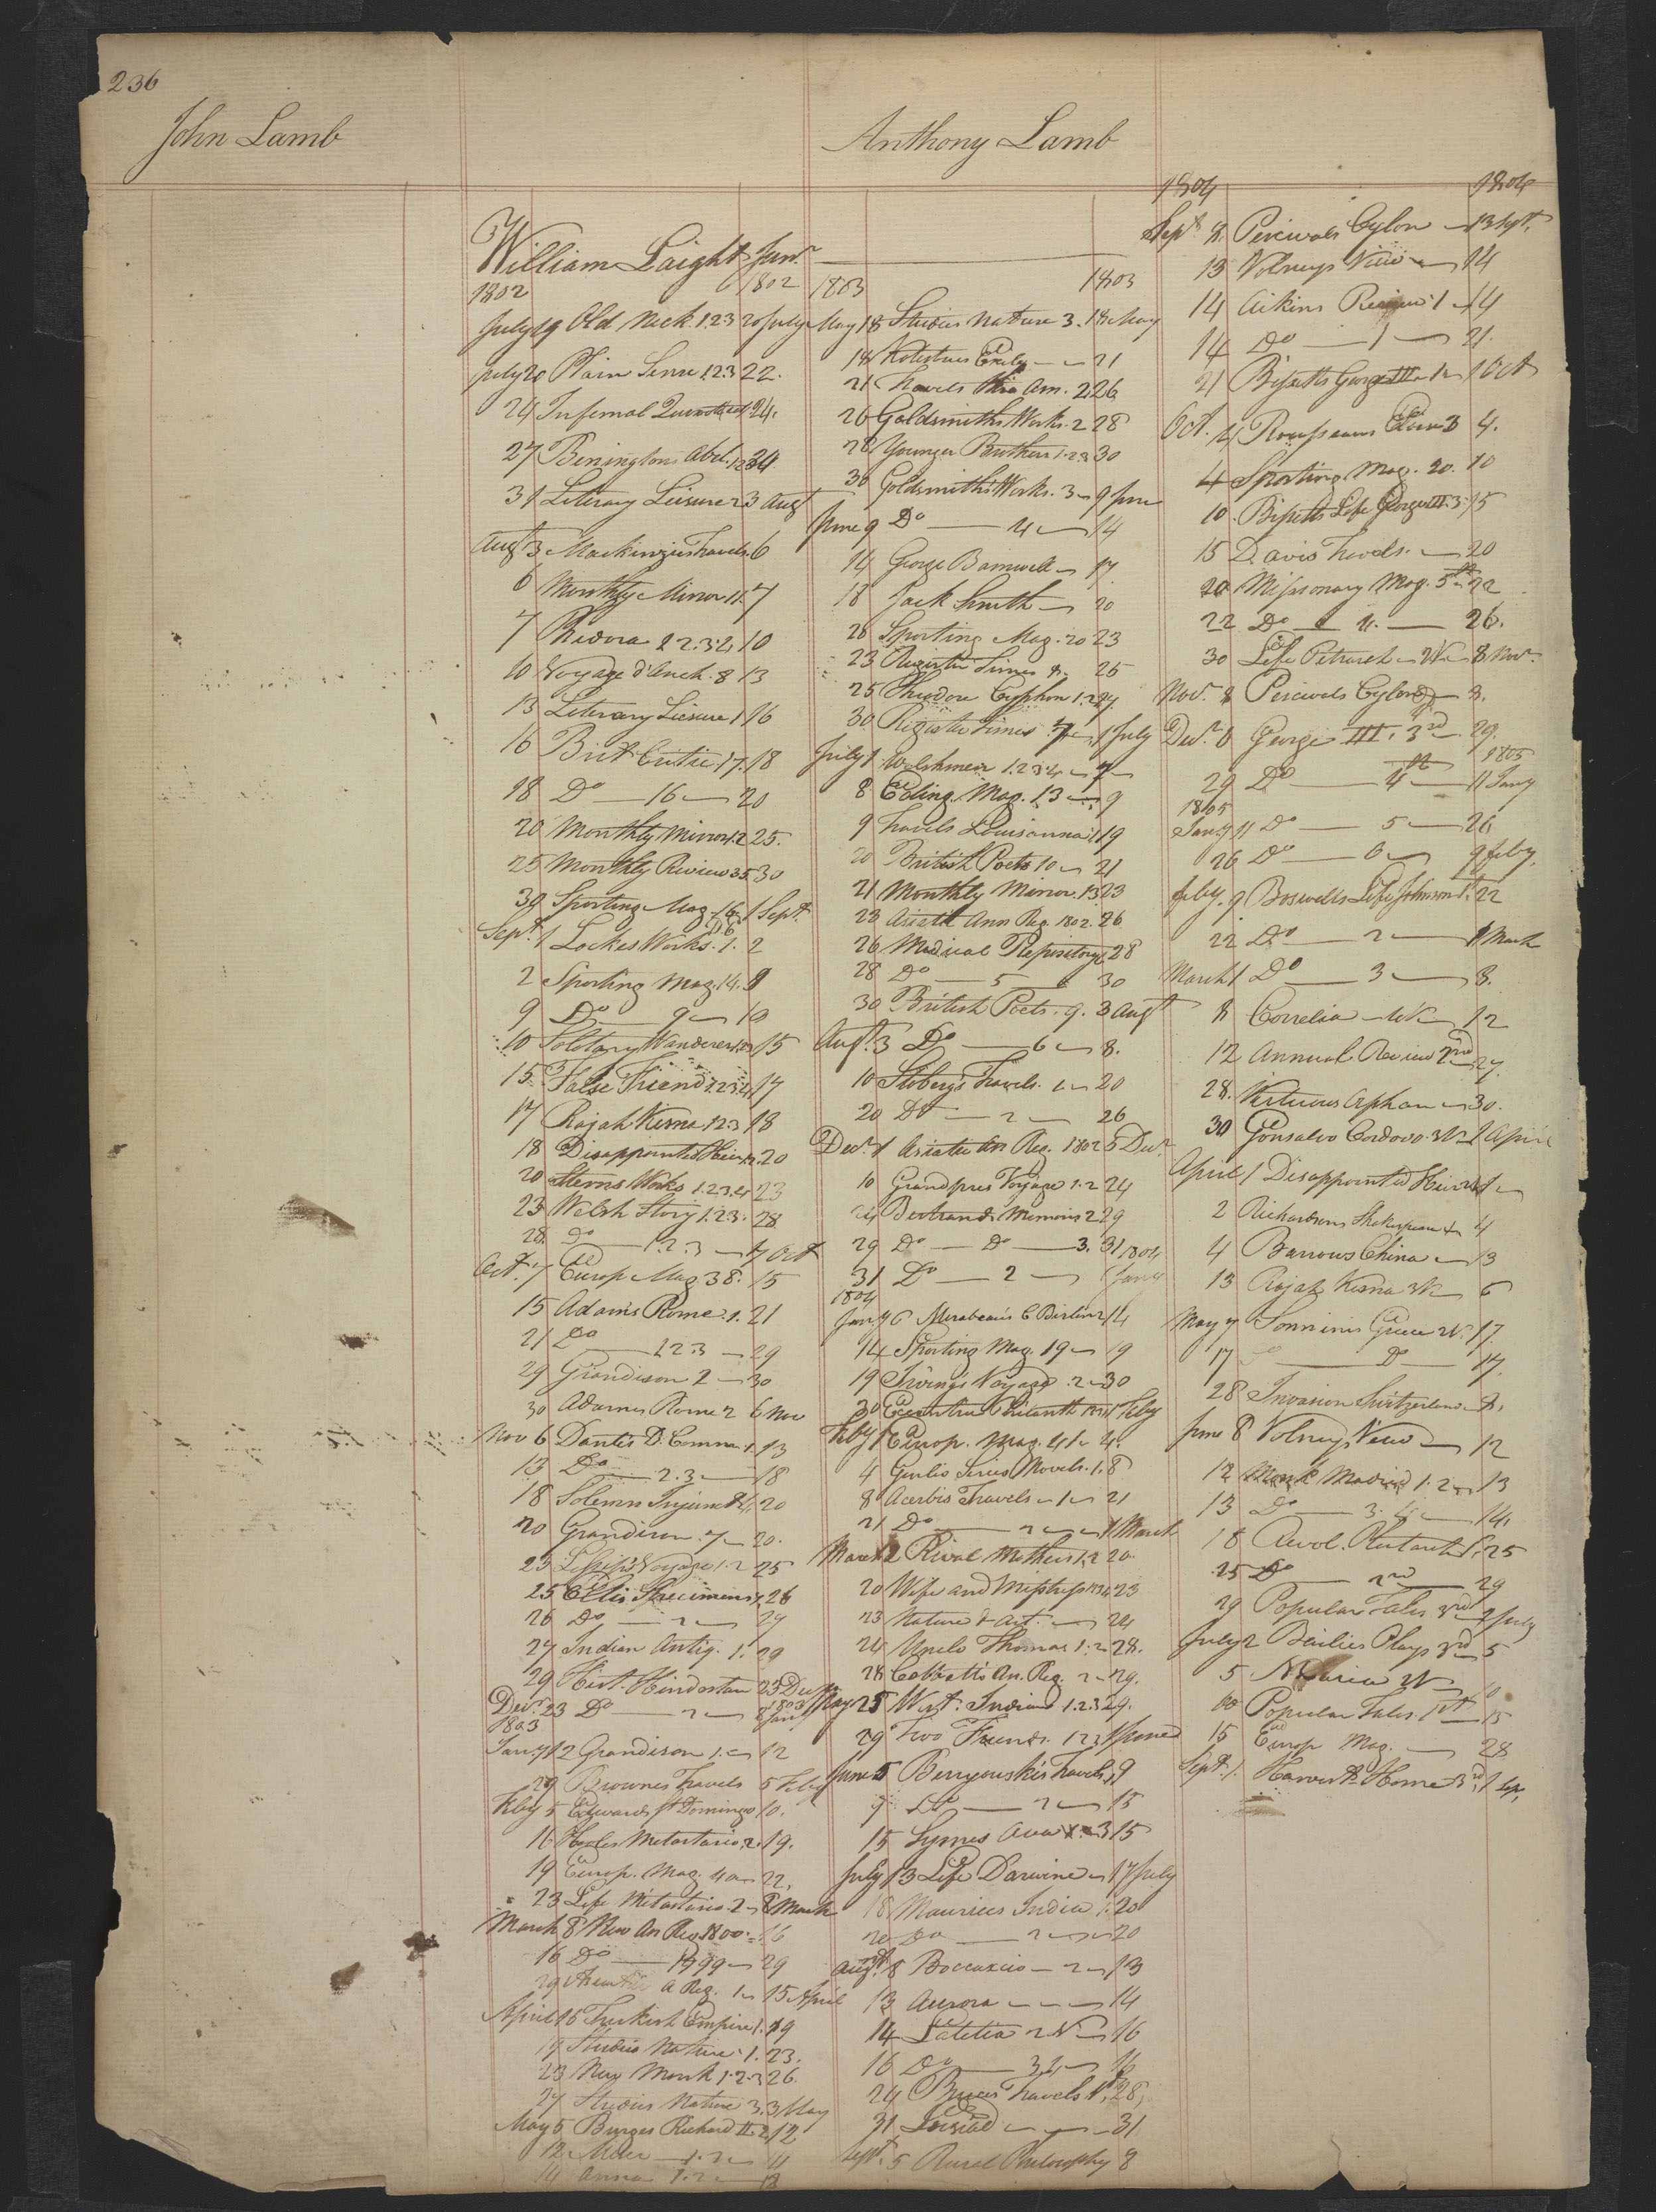 236
John Lamb
Anthony Lamb
William Laight Junr.
1802 1802
July 19 Old Nick. 1.2.3 20 July
July 20 Plain Sense 1.2.3 22.
24 Infernal Quixote 24.
27 Beningtons Abel. 1.2 31
31 Literary Leisure 2 3 Aug
Augt 3 Mackinzies Travels. 6
6 Monthly Mirror 11. 7
7 1.2.3.4 10
10 Voyage d'Anch. 8 13
13 Literary Liesure 1 16
16 Brit Critic 17. 18
18 Do — 16 — 20
20 Monthly Mirror 12 25.
25 Monthly Review 35 30
30 Sporting Mag. 16 1 Sept.
Sept. 1 Lockes Works. 1. 2
2 Sporting Mag. 14. 9
9 Do — 9 — 10
10 Solotary Wanderer 15
15 False Friend 1.2.3.4 17
17 Rajah Kisna 1.2.3 18
18 Disappointed Heir 1.2. 20
20 Sterns Works 1.2.3.4 23
23 Welsh Story 1.2.3. 28
28. Do — 1.2.3 — 7 Oct
Oct. 7 Europ Mag. 38. 15
15 Adam's Rome. 1. 21
21 Do — 1.2.3 — 29
29 Grandison 2 — 30
30 Adams Rome 2 6 Nov
Nov 6 Dantes D. Comm. 1. 13
13 Do — 2.3 — 18
18 Solemn Injunct 20
20 Grandison. 7 — 20.
23 Voyage 1.2 25
25 Ellis Specimens 1. 26
26 Do — 2 — 27
27 Indian Antiq. 1. 29
29 Hist. Hindostan 23 Decr
Decr. 23 Do — 2 — 1803 8 Jany
1803
Jany 12 Grandison 1. — 12
29 Brownes Travels 5 Feby
Feby 5 Edwards St Domingo 10.
16 Metastasio. 2. 19.
19 Europ. Mag. 40 — 22.
23 Life Metastasio. 2 — 8 March
March 8 New An Reg. 1800. 16
16 Do — 1799 — 29
29 A Reg. 1 — 15 April
April 15 Turkish Empire 1. 19
19 Studies Nature. 1. 23.
23 New Monk 1.2.3 26.
27 Studies Nature 3. 3 May
May 5 Burges Richard II. 2 12
12 — 1.2 — 14
14 Anna 1.2 — 18
1803 1803
May 18 Studies Nature 3. 18 May
18 Kotzebues Exile — 21
21 Travels thro Am. 2 26
26 Goldsmiths Works. 2 28
28 Younger Brothers 1.2.3 30
30 Goldsmiths Works. 3 — 9 June
June 9 Do — 4 — 14
14 George Barnwell — 17
18 Jack Smith — 20
20 Sporting Mag. 20 23
23 Register Times 8. 25
25 Theodore Cyphon 1.2 27.
30 Register Times 7 — 1 July
July 1 Welshmen 1.2.3.4 — 7 —
8 Eding. Mag. 13 — 9
9 Travels Louisanna 1 19
20 British Poets 10 — 21
21 Monthly Mirror. 13 23
23 Asiatic Ann Reg. 1802. 26
26 Medical Repository 6 28
28 Do — 5 30
30 British Poets. 9. 3 Augt
Augt. 3 Do — 6 — 8.
10 Stolberg's Travels. 1 — 20
20 Do — 2 — 26
Decr. 1 Asiatic An Reg. 1802 5 Decr
10 Grandpres Voyage 1.2 24
24 Bertrands Memoirs 2 29
29 Do — Do — 3. 31 1804
31 Do — 2 — Jany
1804
Jany 6 Mirabeau's C Berlin 2 14
14 Sporting Mag. 19 — 19
19 Twings Voyage. 2 — 30
30 Eccentric Philanth 1.2.3 1 Feby
Feby 1 Europ. Mag. 41 — 4.
4 Genlis Series Novels. 1. 8
8 Acerbis Travels — 1 — 21
21 Do — 2 — 1 March
March 2 Rival Mothers 1.2 20.
20 Wife and Mistress 1.2.3.4 23
23 Nature & Art. — 24
24 Uncle Thomas 1.2 28.
28 Cobbett's An. Reg. 2 — 29.
May 25 West. Indian 1.2.3 29.
29 Two Friends. 1.2.3 1 June
June 5 Benyouskis Travels. 1 9
9 Do — 2 — 15
15 Symes Ava 1.2.3 15
July 13 Life Darwin — 17 July
18 Maurices India 1. 20
20 Do — 2 — 20
Augt. 8 Boccaccio — 2 — 13
13 Aurora — — — 14
14 Latitia 2 V — 16
16 Do — 3.4 — 16
24 Bruces Travels 1st. 28.
31 Lusiad — — 31
Sept. 5 Rural Philosophy 8
1804 1804
Septr 8. Percivals Cylon — 13 Sept.
13 Volneys View — 14
14 Aikins Review 1 — 14
14 Do — 1 — 21.
21 Bissetts George III. 1 — 1 Oct
Oct. 4 Rousseaus Eloise 3 4.
4 Sporting Mag. 20. 10
10. Bissetts Life George III. 3. 15
15 Davis Travels. — 20
20 Missonary Mag. 5th — 22
22 Do — 4. — 26.
30 Life Petrarch — 2V — 8 Novr.
Novr. 8 Percivals Cylon — 8.
Decr. 6 George III. 3rd — 29.
29 Do — 4th — 1805 11 Jany
1805
Jany 11 Do — 5 — 26
26 Do — 6 — 9 feby.
feby. 9 Boswells Life Johnson 1st. 22
22 Do — 2 — 1 March
March 1 Do — 3 — 8.
8 Correlia — 1V — 12
12 Annual Review 2nd — 27.
28. Virtuous Orphan — 30.
30 Gonsalvo Cordova. 3V — 1 April
April 1 Disappointed Heir 2V 1 —
2 Richardsons Shakespeare 4
4 Barrows China — 13
13 Rajah Kisna 3V — 6
May 7 Sonninis Greece 2V. 17.
17 — Do — 17.
28 Invasion Switzerland — 8.
June 8 Volneys View — 12
12 Monk Madrid 1.2 — 13
13 Do — 3.4 — 14.
18 Revol. Plutarch 1. 25
25 Do — 2nd — 29
29 Popular Tales 3rd — 2 July
July 2 Bailies Plays 3rd — 5
5 2V — 10
10 Popular Tales. 1st — 15
15 Europ Mag. — 28
Sept. 1. Harvest Home 3rd. 1 Sep.